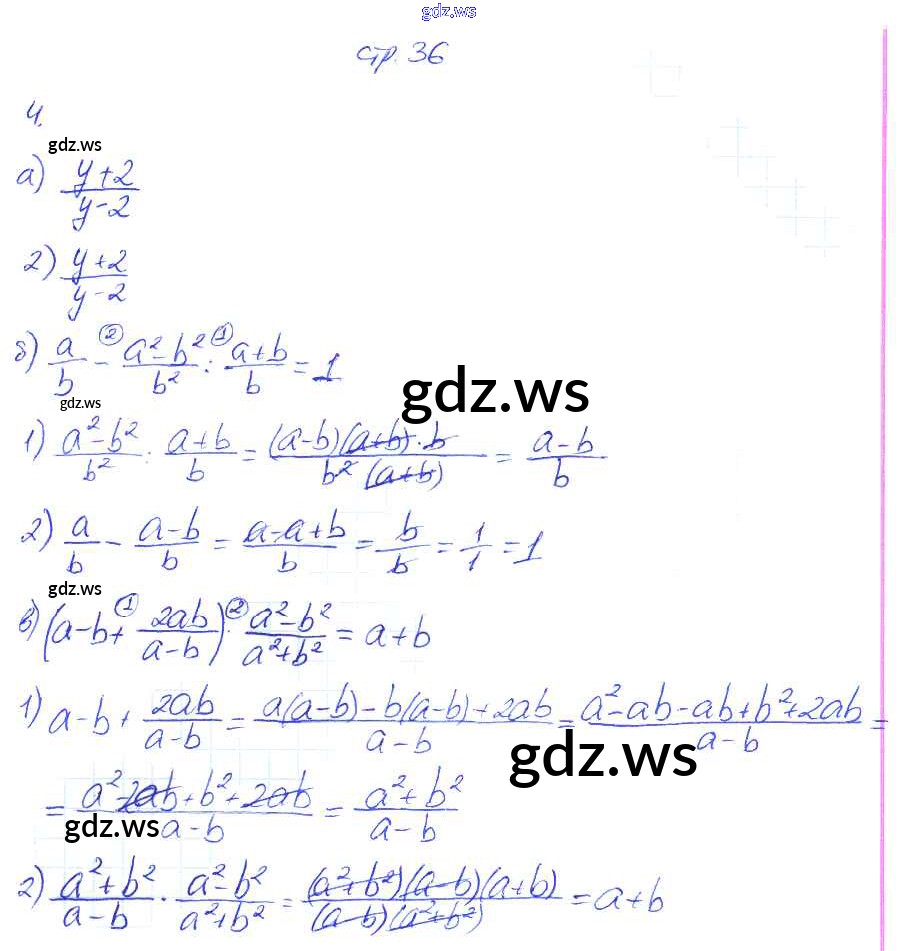 gdz.ws
стр. 36
4.
gdz.ws
а) (y+2)/(y-2)
2) (y+2)/(y-2)
б) a/b -② (a²-b²)/b² :① (a+b)/b = 1
gdz.ws
gdz.ws
1) (a²-b²)/b² : (a+b)/b = ((a-b)(a+b)·b)/(b²(a+b)) = (a-b)/b
2) a/b - (a-b)/b = (a-a+b)/b = b/b = 1/1 = 1
gdz.ws
в) (a-b+① 2ab/(a-b)) ·② (a²-b²)/(a²+b²) = a+b
1) a-b + 2ab/(a-b) = (a(a-b)-b(a-b)+2ab)/(a-b) = (a²-ab-ab+b²+2ab)/(a-b) =
gdz.ws
= (a²-2ab+b²+2ab)/(a-b) = (a²+b²)/(a-b)
gdz.ws
2) (a²+b²)/(a-b) · (a²-b²)/(a²+b²) = ((a²+b²)(a-b)(a+b))/((a-b)(a²+b²)) = a+b